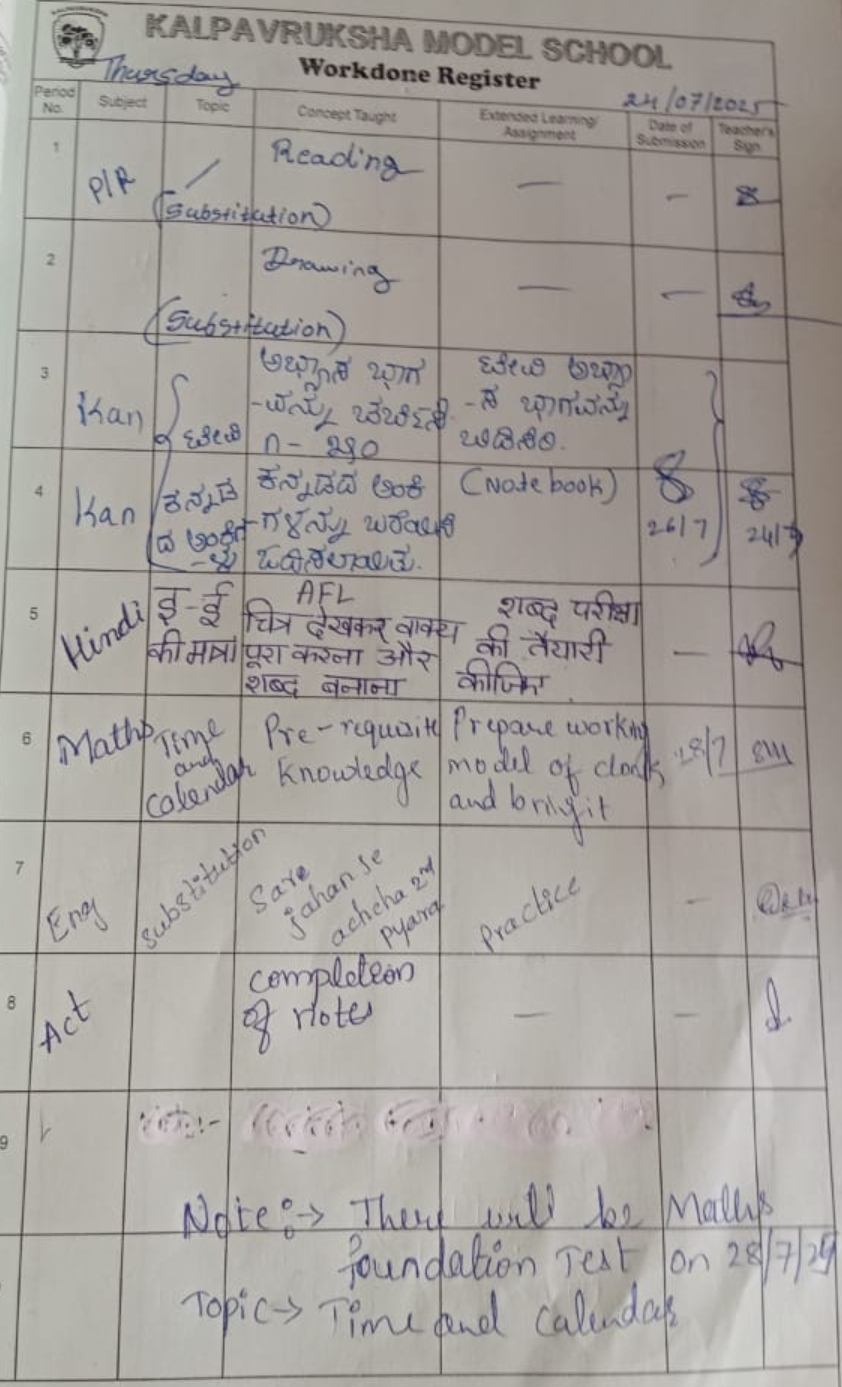 KALPAVRUKSHA MODEL SCHOOL
Workdone Register
Thursday
24/07/2025
Period No. Subject Topic Concept Taught Extended Learning/ Assignment Date of Submission Teacher's Sign
1 P/R / Reading — -
(Substitution)
2 Drawing — —
(Substitution)
3 Kan
ಅಭ್ಯಾಸ ಭಾಗ
-ವನ್ನು
ಅಭ್ಯಾ
-ಸ ಭಾಗವನ್ನು
ಬಿಡಿಸಿರಿ.
4 Kan
ಕನ್ನಡ
ದ ಅಂಕಿಗ
-ಳು
ಕನ್ನಡದ ಅಂಕಿ
-ಗಳನ್ನು
(Note book)
26/7
24/7
5 Hindi
इ-ई
की मात्रा
AFL
चित्र देखकर वाक्य
पूरा करना और
शब्द बनाना
शब्द परीक्षा
की तैयारी
कीजिए
—
6 Maths
Time
and
Calendar
Pre-requisite
Knowledge
Prepare working
model of clock
and bring it
28/7
7 Eng
Substitution
Sare
jahan se
achcha 2nd
pyara
Practice
-
8 Act
completion
of notes
—
-
9
Note:→ There will be Maths
foundation Test on 28/7/25
Topic→ Time and calendar